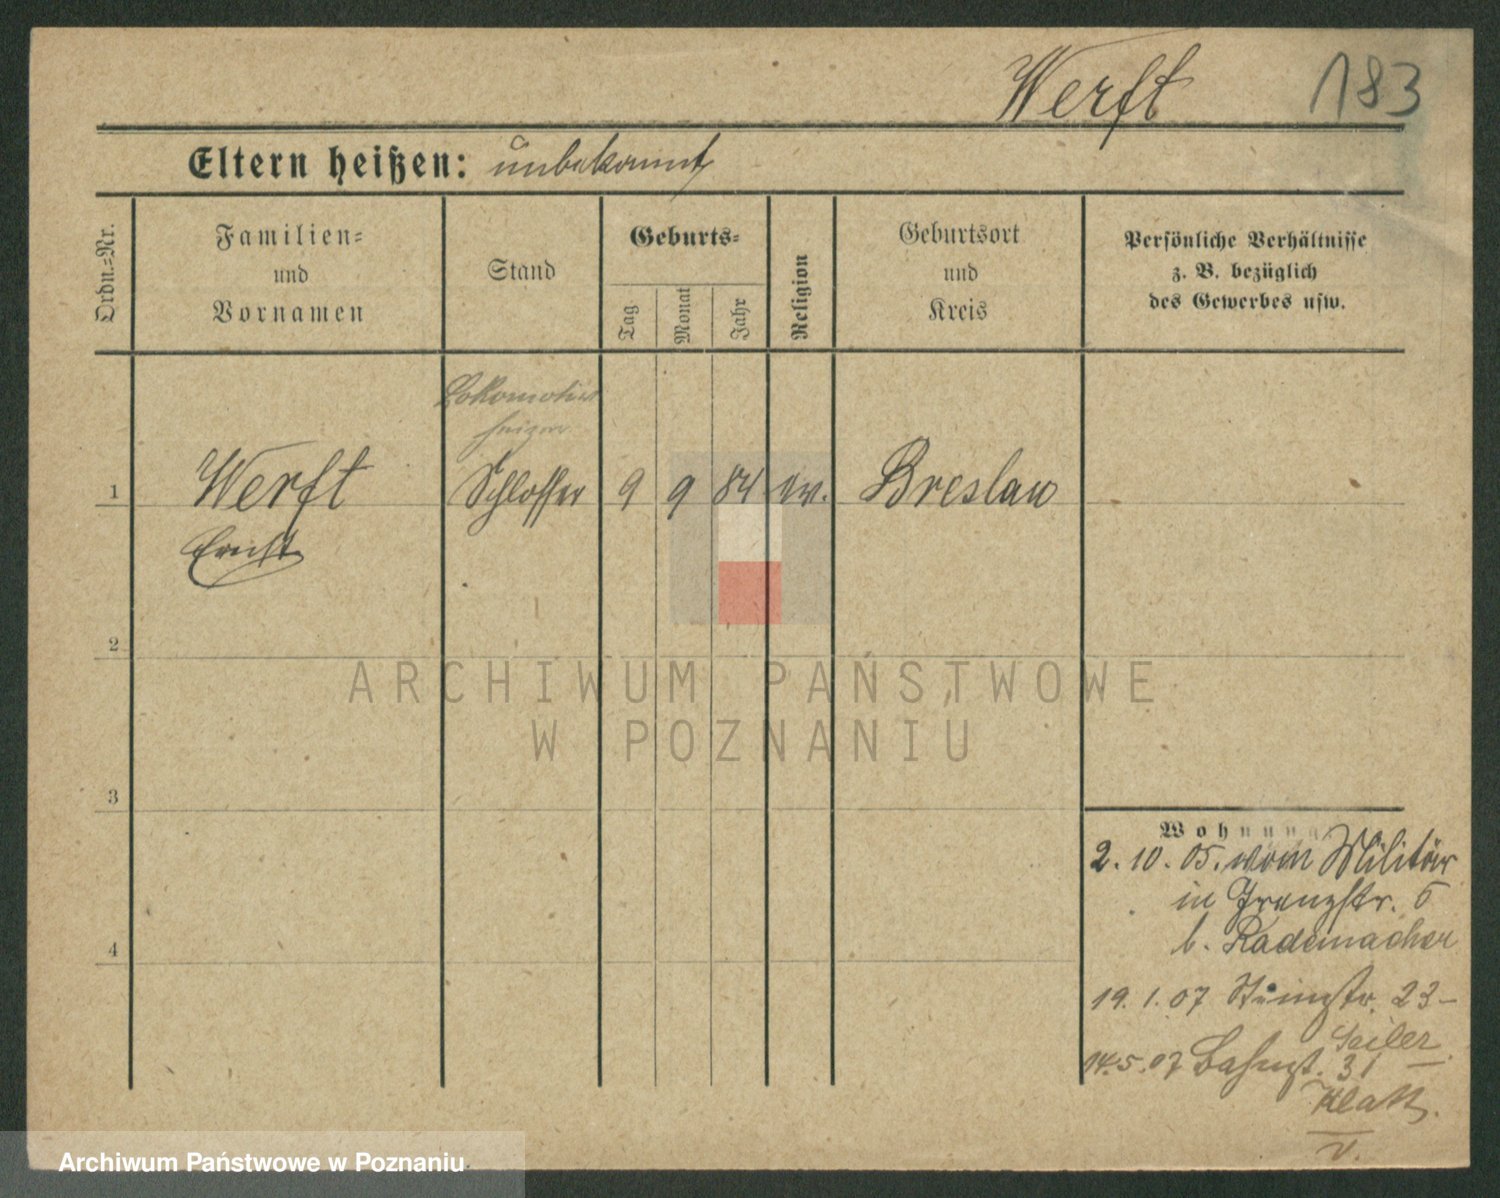 Werft 183
Eltern heißen: unbekannt
Ordn.=Nr.
Familien=
und
Vornamen
Stand
Geburts=
Tag
Monat
Jahr
Religion
Geburtsort
und
Kreis
Persönliche Verhältnisse
z. B. bezüglich
des Gewerbes usw.
Lokomotiv
heizer
1 Werft Schlosser 9 9 84 ev. Breslau
Ernst
2
ARCHIWUM PAŃSTWOWE
W POZNANIU
3
Wohnung
2. 10. 05. vom Militär
in 5
b. Rademacher
4
19. 1. 07 23 –
Seiler
14.5.07 Bahnst. 31
Klatt.
v.
Archiwum Państwowe w Poznaniu